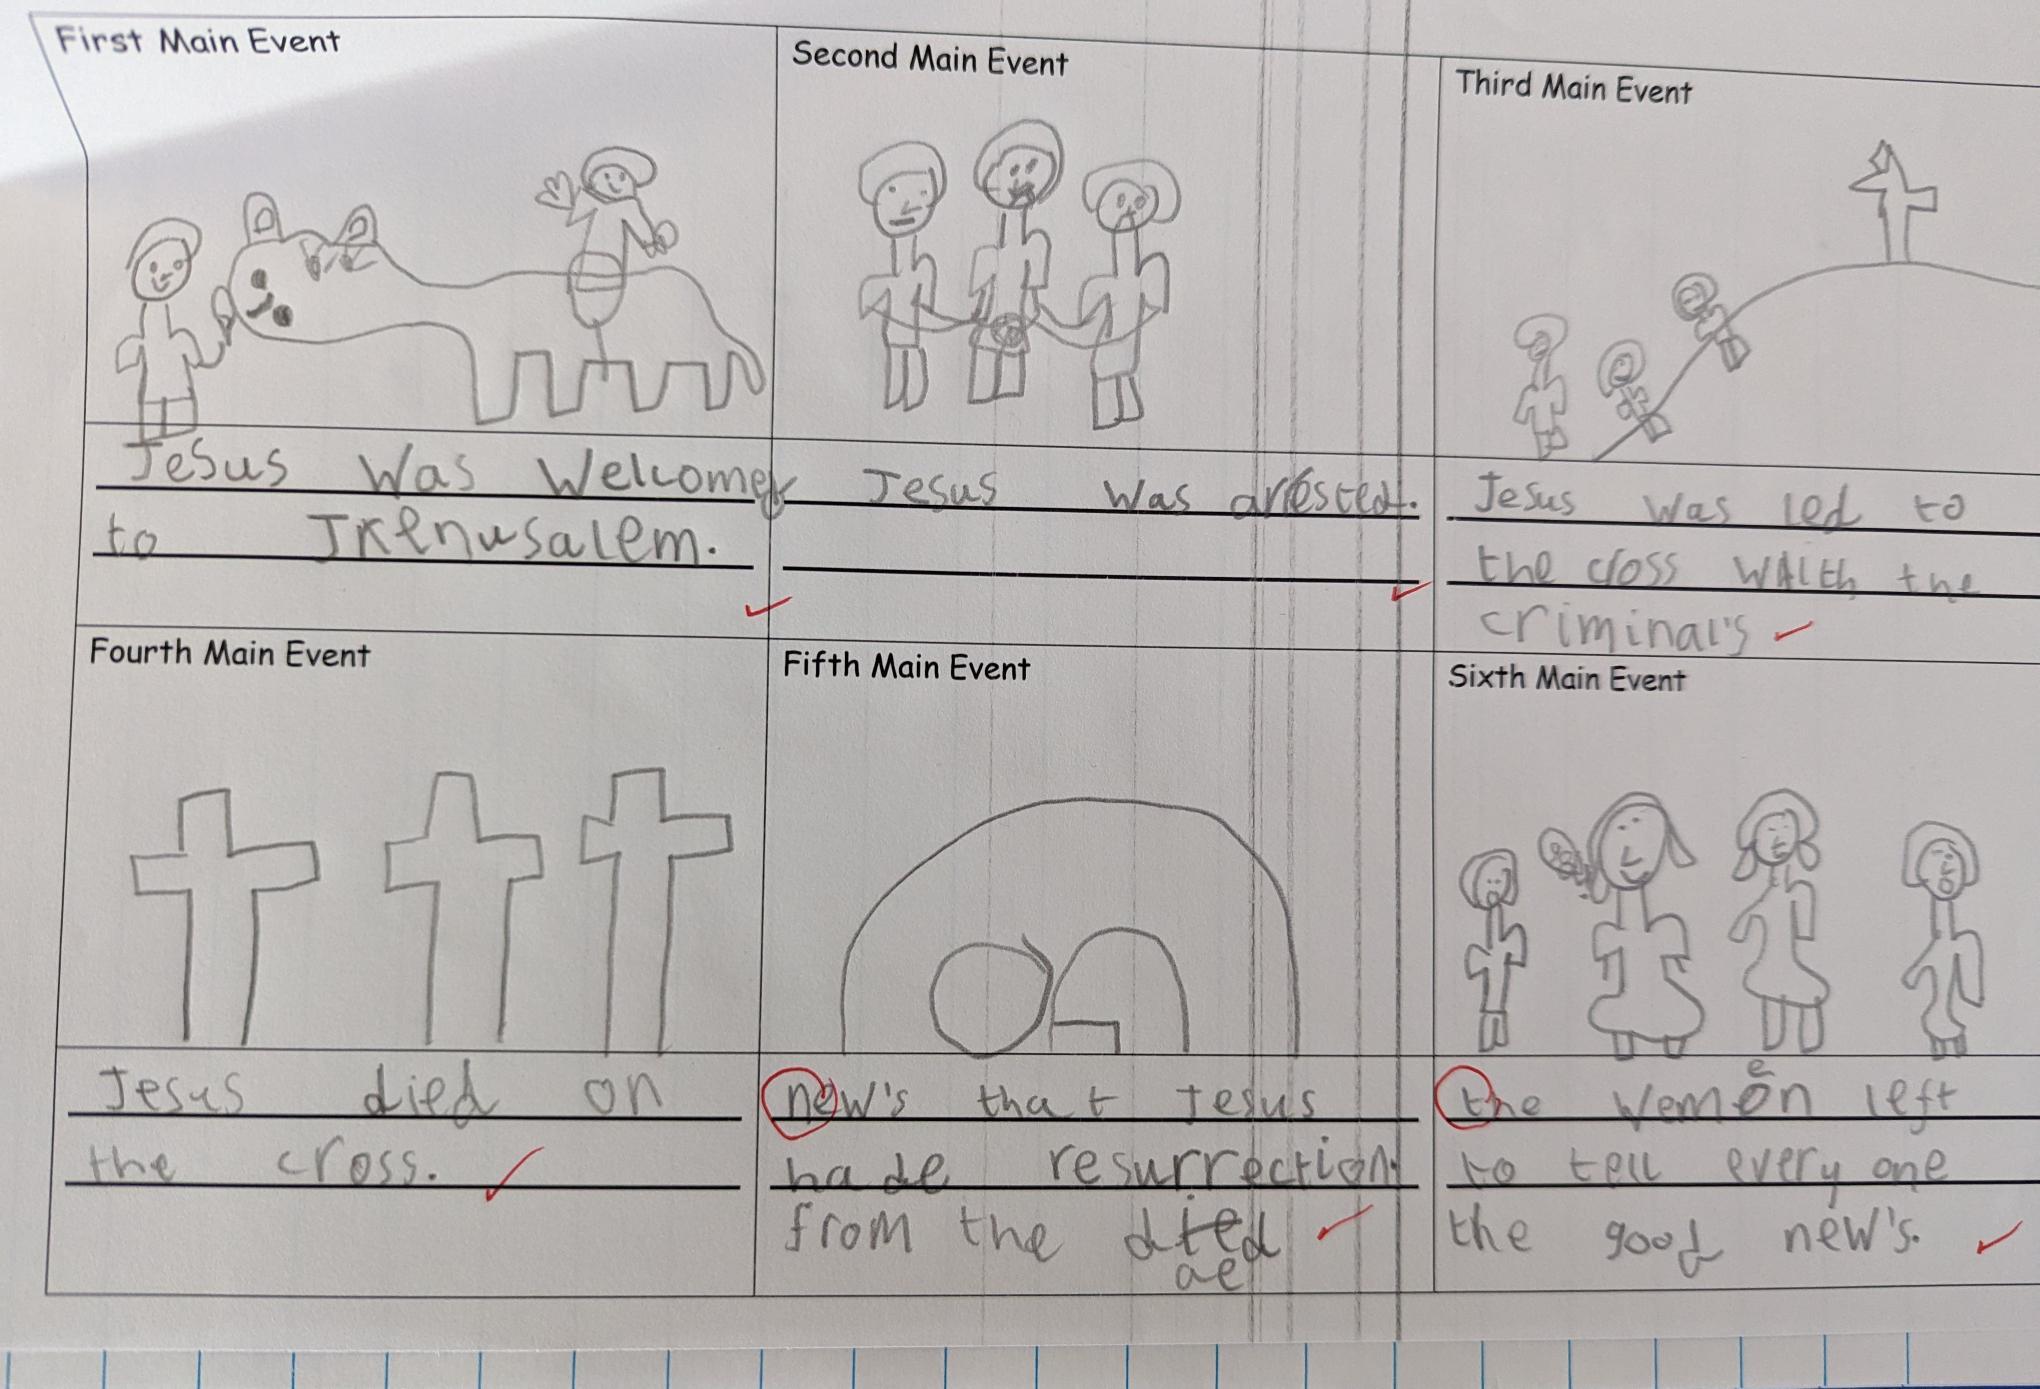 First Main Event
Jesus was welcomed
to Jerusalem.
Second Main Event
Jesus was arrested.
Third Main Event
Jesus was led to
the cross with the
criminal's
Fourth Main Event
Jesus died on
the cross.
Fifth Main Event
new's that Jesus
hade resurrection
from the died
ae
Sixth Main Event
the wemen left
to tell every one
the good new's.